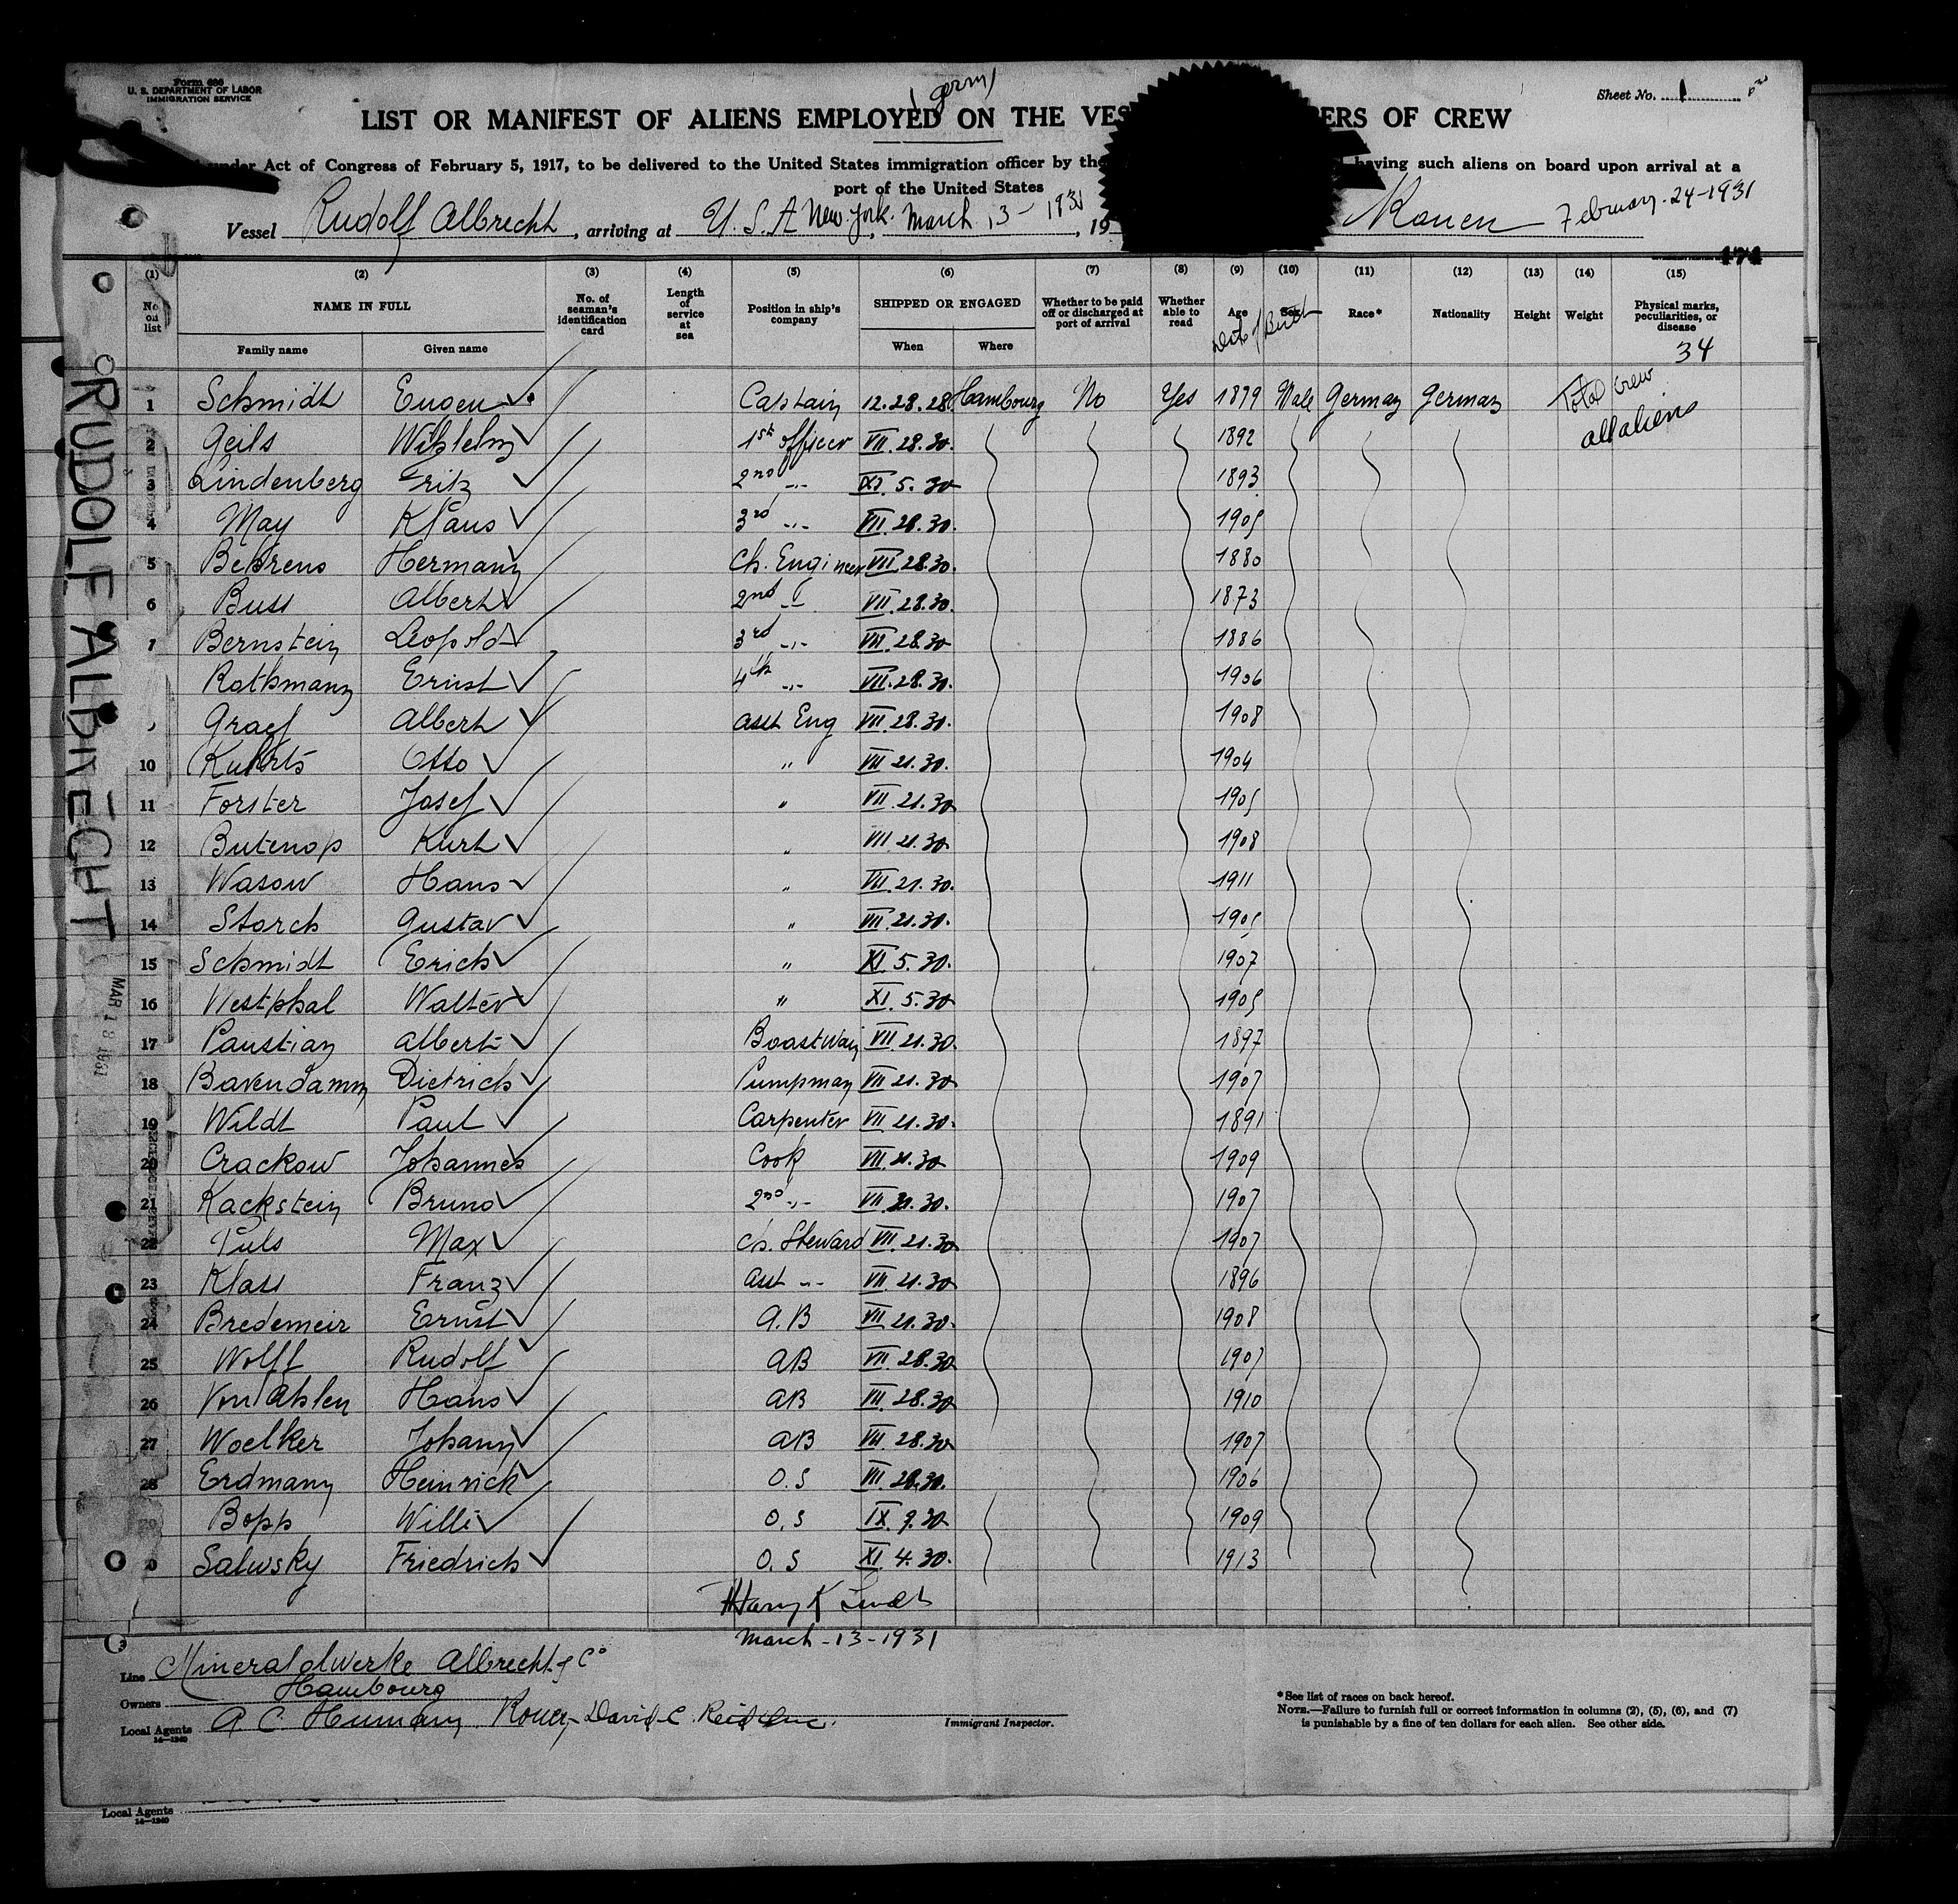 Form 686
U. S. DEPARTMENT OF LABOR
IMMIGRATION SERVICE
Sheet No. 1
(germ)
LIST OR MANIFEST OF ALIENS EMPLOYED ON THE VES ERS OF CREW
under Act of Congress of February 5, 1917, to be delivered to the United States immigration officer by the having such aliens on board upon arrival at a
port of the United States
Vessel Rudolf Albrecht, arriving at U.S.A New York. March 13 - 1931, 19 Rouen February - 24 - 1931
474
(1) (2) (3) (4) (5) (6) (7) (8) (9) (10) (11) (12) (13) (14) (15)
No. on list NAME IN FULL No. of seaman's identification card Length of service at sea Position in ship's company SHIPPED OR ENGAGED Whether to be paid off or discharged at port of arrival Whether able to read Age Sex Race* Nationality Height Weight Physical marks, peculiarities, or disease
Family name Given name When Where Date of Birth 34
1 Schmidt Eugen Captain 12.28.28. Hambourg No Yes 1879 Male German German Total crew
all aliens
2 Geils Wilhelm 1st officer VII.28.30. 1892
3 Lindenberg Fritz 2nd -"- XI.5.30 1893
4 May Klaus 3rd -"- VII.28.30. 1905
5 Behrens Hermann Ch. Engineer VII.28.30. 1880
6 Buss Albert 2nd -"- VII.28.30. 1873
7 Bernstein Leopold 3rd -"- VII.28.30 1886
Rothmann Ernst 4th -"- VII.28.30. 1906
Graef Albert asst Eng VII.28.30. 1908
10 Kuhrts Otto " VII 21.30. 1904
11 Forster Josef " VII.21.30 1905
12 Butenop Kurt " VII 21.30 1908
13 Wasow Hans " VII.21.30. 1911
14 Storch Gustav " VII.21.30. 1905
15 Schmidt Erich " XI 5.30. 1907
16 Westphal Walter " XI.5.30 1905
17 Paustian Albert Boastwain VII 21.30. 1897
18 Bavendamm Dietrich Pumpman VII 21.30 1907
19 Wildt Paul Carpenter VII.21.30. 1891
20 Crackow Johannes Cook VII.21.30 1909
21 Kackstein Bruno 2nd -"- VII 21.30. 1907
22 Puls Max Ch. Steward VII.21.30 1907
23 Klass Franz Asst -"- VII.21.30 1896
24 Bredemeir Ernst A.B VII.21.30. 1908
25 Wolff Rudolf AB VII.28.30 1907
26 Von Ahslen Hans AB VII.28.30 1910
27 Woelker Johann AB VII.28.30 1907
28 Erdmann Heinrich O.S VII 28.30. 1906
Bopp Willi O.S IX.9.30 1909
Salwsky Friedrich O.S XI 4.30. 1913
Harry K
March - 13 - 1931
Line Mineralölwerke Albrecht & Co
Owners Hambourg
Local Agents A C Humann Rouen David C. Reid Inc.
14—1240
Immigrant Inspector.
*See list of races on back hereof.
NOTE.—Failure to furnish full or correct information in columns (2), (5), (6), and (7)
is punishable by a fine of ten dollars for each alien. See other side.
Local Agents
14—1240
RUDOLF ALBRECHT
MAR 13 1931